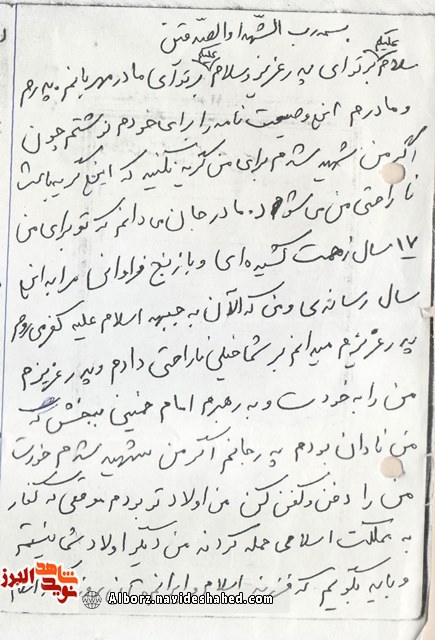 بسمه رب الشهدا و الصدقین
علیکم علیکم
سلام بر تو ای پدر عزیز و سلام بر تو ای مادر مهربانم. پدرم
و مادرم این وصیت نامه را برای خودم نوشتم چون
اگر من شهید شدم برای من گریه نکنید که این گریه باعث
ناراحتی من می شود. مادر جان می دانم که تو برای من
۱۷ سال زحمت کشیده ای و با رنج فراوانی مرا به این
سال رساندی و من که الآن به جبهه اسلام علیه کفر می روم
پدر عزیزم میدانم بر شما خیلی ناراحتی دادم و پدر عزیزم
من را به خودت و به رهبرم امام خمینی ببخش که
من نادان بودم پدر جانم اگر من شهید شدم خودت
من را دفن و کفن کن من اولاد تو بودم موقعی که کفار
به مملکت اسلامی حمله کردند من دیگر اولاد شما نیستم
و باید بگویم که فرزند اسلام و ایرانی
شاهد
نوید
البرز
Alborz.navideshahed.com